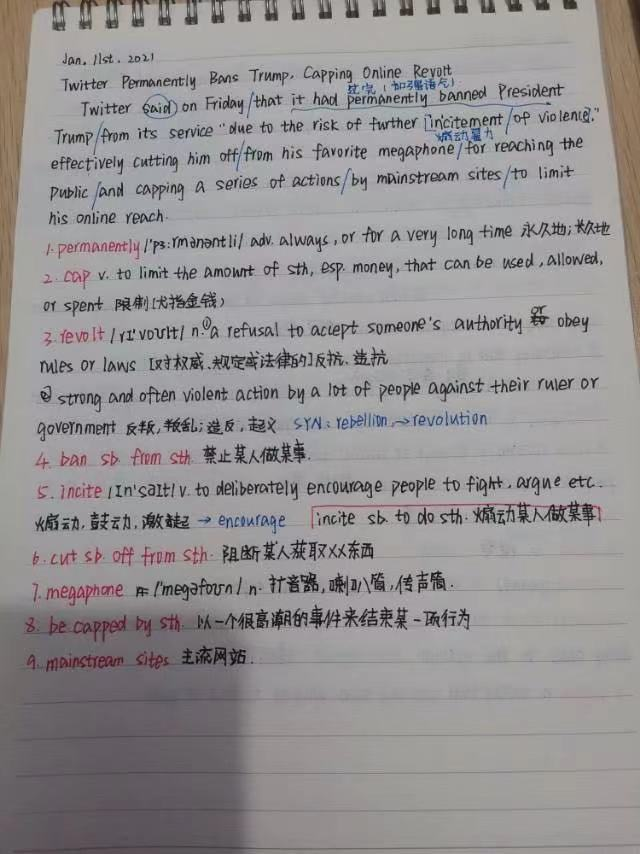 Jan. 11st. 2021
Twitter Permanently Bans Trump, Capping Online Revolt
过完(加强语气)
Twitter said on Friday/that it had permanently banned President
Trump/from its service "due to the risk of further incitement/of violence."
煽动暴力
effectively cutting him off/from his favorite megaphone/for reaching the
public/and capping a series of actions/by mainstream sites/to limit
his online reach.
1. permanently /'pɜ:rmənəntli/ adv. always, or for a very long time 永久地;长久地
2. cap v. to limit the amount of sth, esp. money, that can be used, allowed,
or spent 限制(尤指金钱)
3. revolt /rɪ'voʊlt/ n.① a refusal to accept someone's authority or obey
rules or laws [对权威、规定或法律的]反抗、违抗
② strong and often violent action by a lot of people against their ruler or
government 反叛,叛乱;造反,起义 SYN: rebellion,→revolution
4. ban sb. from sth. 禁止某人做某事.
5. incite /ɪn'saɪt/ v. to deliberately encourage people to fight, argue etc.
煽动,鼓动,激起 → encourage incite sb. to do sth. 煽动某人做某事
6. cut sb. off from sth. 阻断某人获取XX东西
7. megaphone /'megəfoʊn/ n. 扩音器,喇叭筒,传声筒.
8. be capped by sth. 以一个很高潮的事件来结束某一项行为
9. mainstream sites 主流网站.